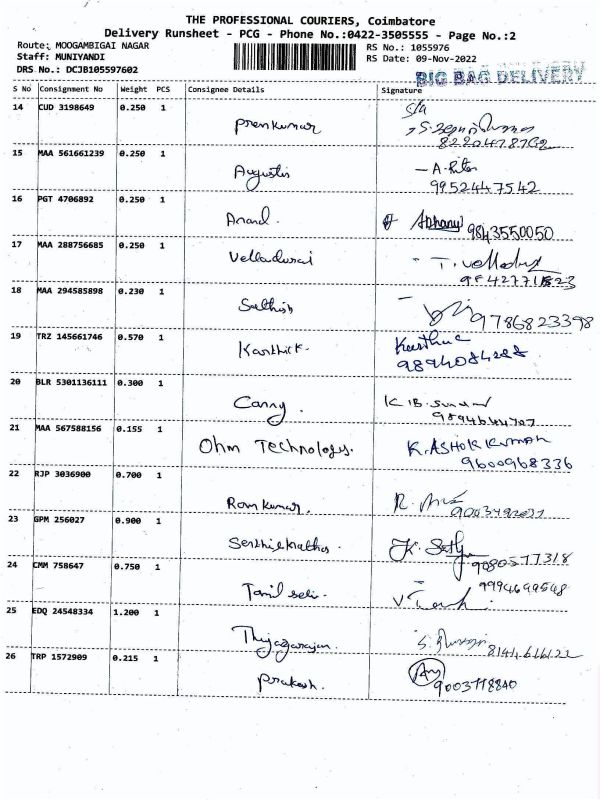 THE PROFESSIONAL COURIERS, Coimbatore
Delivery Runsheet - PCG - Phone No.:0422-3505555 - Page No.:2
Route: MOOGAMBIGAI NAGAR RS No.: 1055976
Staff: MUNIYANDI RS Date: 09-Nov-2022
DRS No.: DCJB105597602 BIG BAG DELIVERY
S No Consignment No Weight PCS Consignee Details Signature
14 CUD 3198649 0.250 1 Premkumar
15 MAA 561661239 0.250 1 Augustin
9952447542
16 PGT 4706892 0.250 1 Anand. 9843550050
17 MAA 288756685 0.250 1 Velladurai
18 MAA 294585898 0.230 1 Sathish 9786823398
19 TRZ 145661746 0.570 1 Karthick.
9894084288
20 BLR 5301136111 0.300 1 Canny.
21 MAA 567588156 0.155 1 Ohm Technology. K. ASHOK KUMAR
9600968336
22 RJP 3036900 0.700 1 Ramkumar.
23 GPM 256027 0.900 1 K. Sathya
9080577318
24 CMM 758647 0.750 1 Tamil selvi. 9994699548
25 EDQ 24548334 1.200 1 Thiyagarajan.
26 TRP 1572909 0.215 1 Prakash.
9003778840